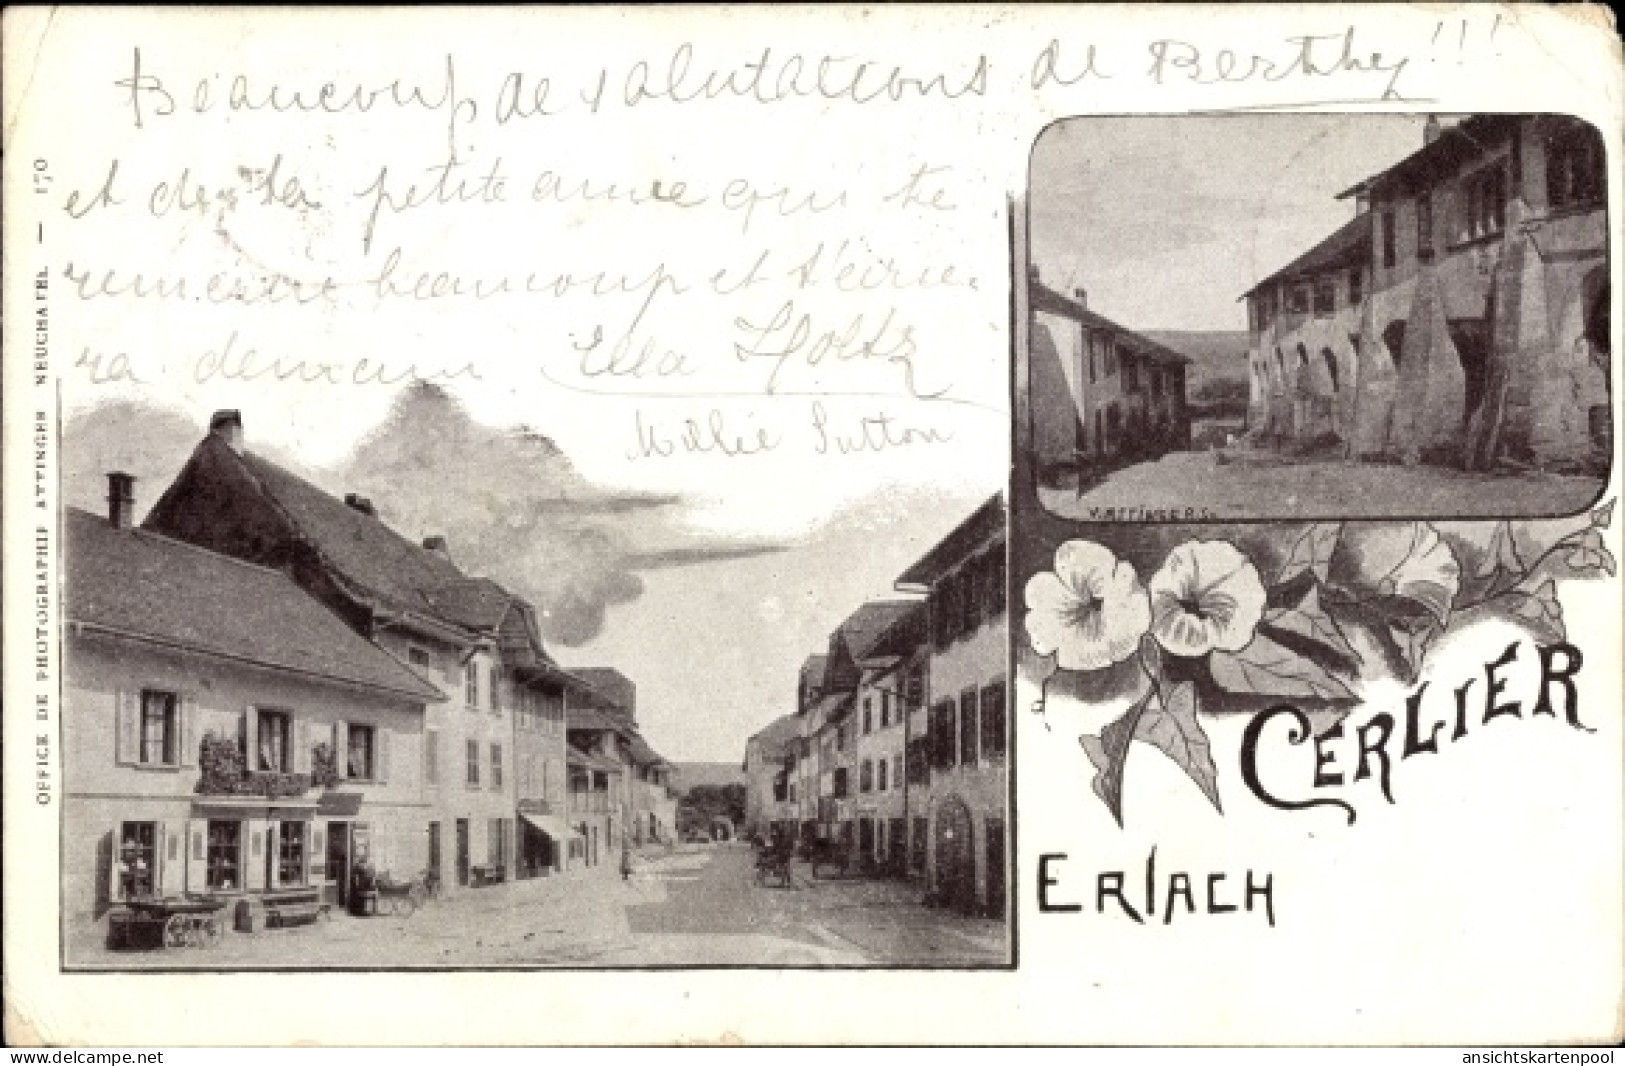 Beaucoup de salutations de Berthy!!!
et de ta petite amie qui te
remercie beaucoup et t'écrie-
ra demain Ella Holtz
Millie Sutton
OFFICE DE PHOTOGRAPHIE ATTINGER NEUCHATEL — 170
V. ATTINGER S.
CERLIER
ERLACH
www.delcampe.net
ansichtskartenpool